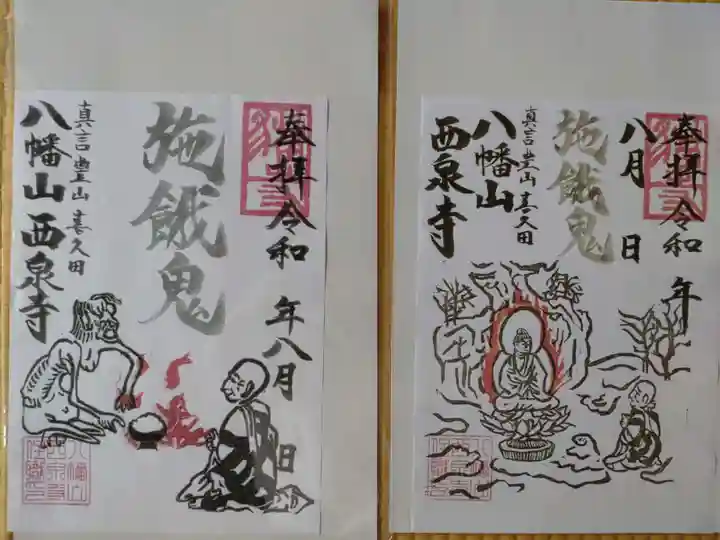 奉拝令和 年八月 日
施餓鬼
真言豊山 喜久田
八幡山西泉寺
奉拝令和 年
八月 日
施餓鬼
真言豊山 喜久田
八幡山
西泉寺